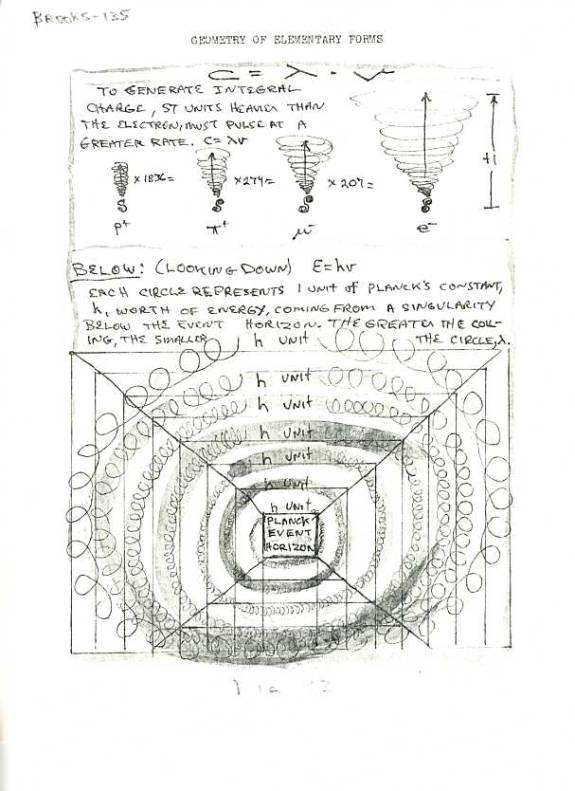 BROOKS-135
GEOMETRY OF ELEMENTARY FORMS
C = λ · ν
TO GENERATE INTEGRAL
CHARGE, ST UNITS HEAVIER THAN
THE ELECTRON, MUST PULSE AT A
GREATER RATE. C=λν
x 1836 =
x 274 =
x 207 =
P+
π+
μ-
e-
BELOW: (LOOKING DOWN) E=hν
EACH CIRCLE REPRESENTS 1 UNIT of PLANCK'S CONSTANT,
h, WORTH OF ENERGY, COMING FROM A SINGULARITY
BELOW THE EVENT HORIZON. THE GREATER THE COIL-
ING, THE SMALLER THE CIRCLE, λ.
h UNIT
h UNIT
h UNIT
h UNIT
h UNIT
h UNIT
h UNIT
PLANCK
EVENT
HORIZON